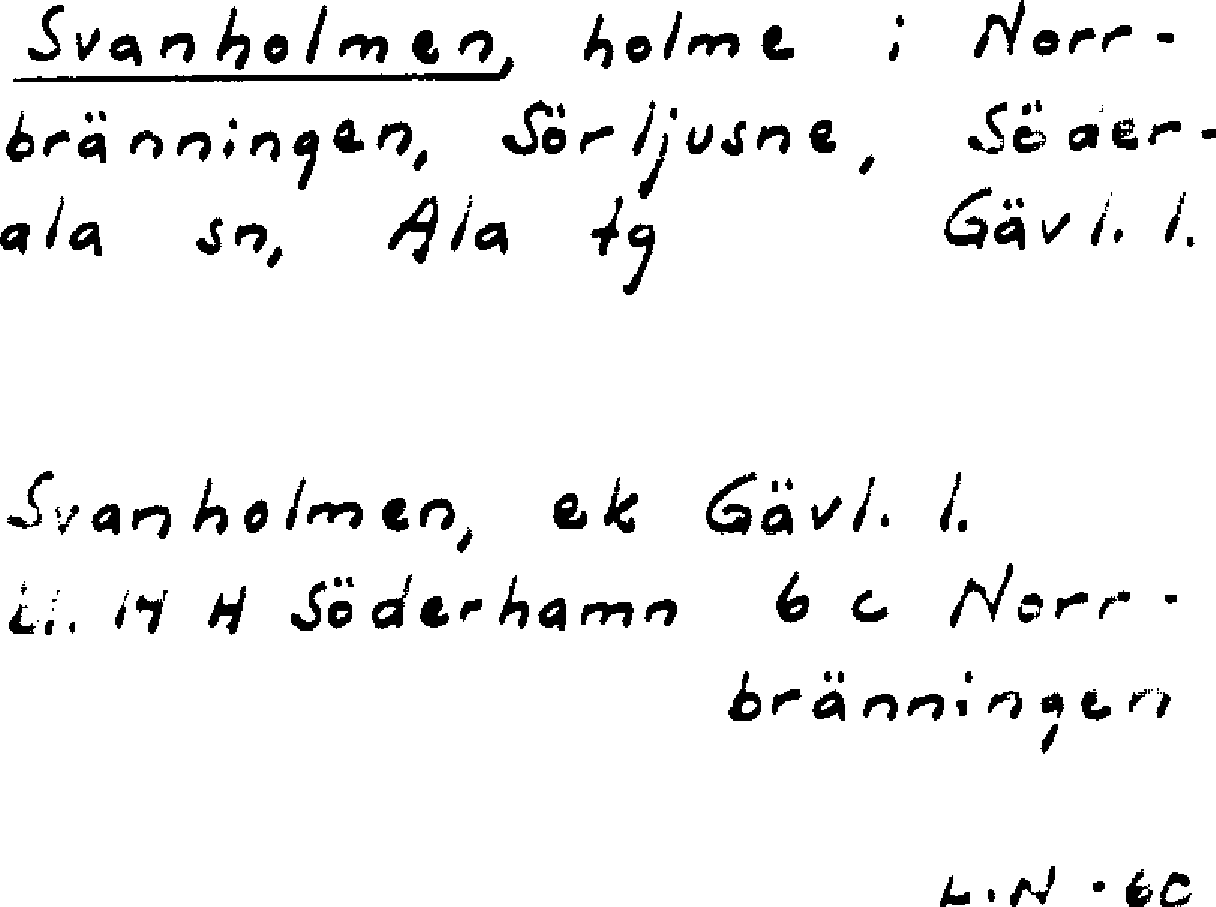 Svanholmen, holme i Norr-
bränningen, Sörljusne, Söder-
ala sn, Ala tg Gävl. l.
Svanholmen, ek Gävl. l.
bl. 14 H Söderhamn 6 c Norr-
bränningen
L.N - 60